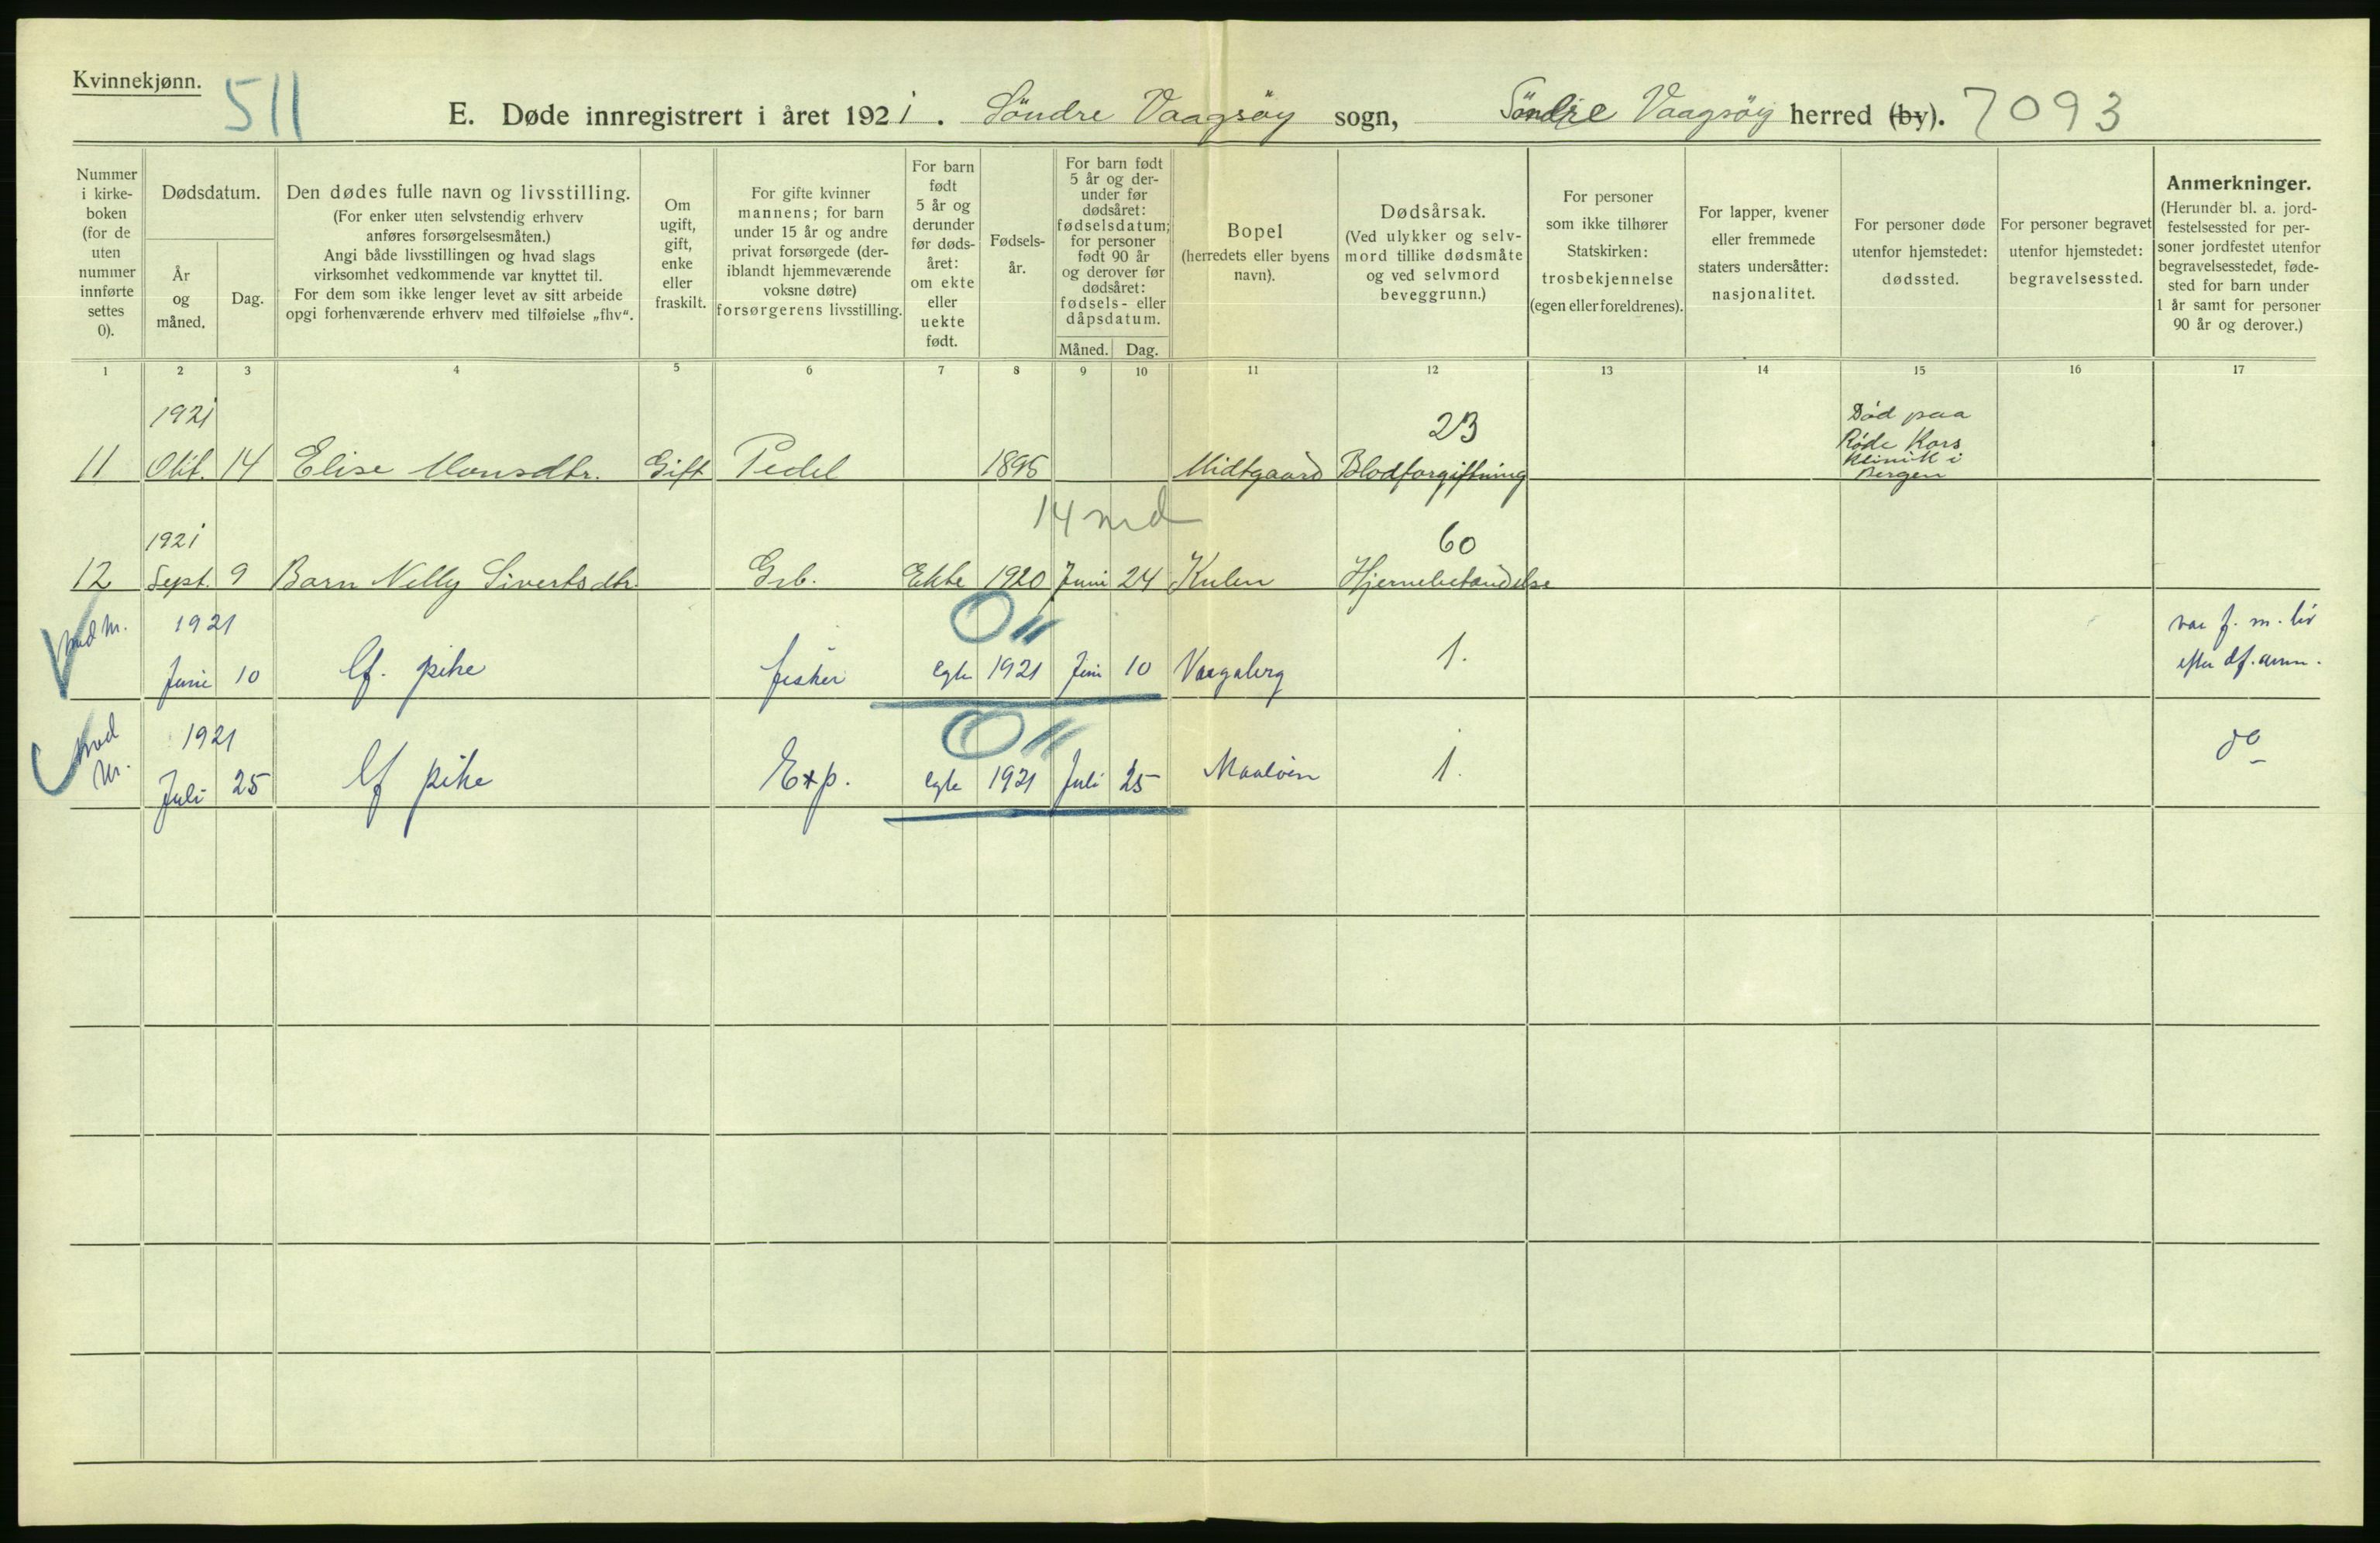 Kvinnekjønn.
511
E. Døde innregistrert i året 1921. Söndre Vaagsöy sogn, Söndre Vaagsöy herred (by). 7093
Nummer i kirke-boken (for de uten nummer innførte settes 0).
Dødsdatum.
År og måned.
Dag.
Den dødes fulle navn og livsstilling.
(For enker uten selvstendig erhverv
anføres forsørgelsesmåten.)
Angi både livsstillingen og hvad slags
virksomhet vedkommende var knyttet til.
For dem som ikke lenger levet av sitt arbeide
opgi forhenværende erhverv med tilføielse „fhv“.
Om ugift, gift, enke eller fraskilt.
For gifte kvinner
mannens; for barn
under 15 år og andre
privat forsørgede (der-
iblandt hjemmeværende
voksne døtre)
forsørgerens livsstilling.
For barn født 5 år og derunder før døds-året: om ekte eller uekte født.
Fødsels-år.
For barn født
5 år og der-
under før
dødsåret:
fødselsdatum;
for personer
født 90 år
og derover før
dødsåret:
fødsels- eller
dåpsdatum.
Måned. Dag.
Bopel
(herredets eller byens
navn).
Dødsårsak.
(Ved ulykker og selv-
mord tillike dødsmåte
og ved selvmord
beveggrunn.)
For personer
som ikke tilhører
Statskirken:
trosbekjennelse
(egen eller foreldrenes).
For lapper, kvener
eller fremmede
staters undersåtter:
nasjonalitet.
For personer døde
utenfor hjemstedet:
dødssted.
For personer begravet
utenfor hjemstedet:
begravelsessted.
Anmerkninger.
(Herunder bl. a. jord-
festelsessted for per-
soner jordfestet utenfor
begravelsesstedet, føde-
sted for barn under
1 år samt for personer
90 år og derover.)
1 2 3 4 5 6 7 8 9 10 11 12 13 14 15 16 17
1921
23
Död paa
Röde Kors
Klinik i
Bergen
11 Okt. 14 Elise Monsdtr. Gift Pedel 1895 Midtgaard Blodforgiftning
14 md
1921
60
12 Sept. 9 Barn Nelly Sivertsdtr. Grb. Ekte 1920 Juni 24 Kulen Hjernebetændelse
1921
0 11
Juni 10 lf. pike fisker egte 1921 Juni 10 Vaagsberg 1.
var f. m. liv
efter df. anm.
1921
0 11
Juli 25 lf pike Exp. egte 1921 Juli 25 Maalöen 1. do